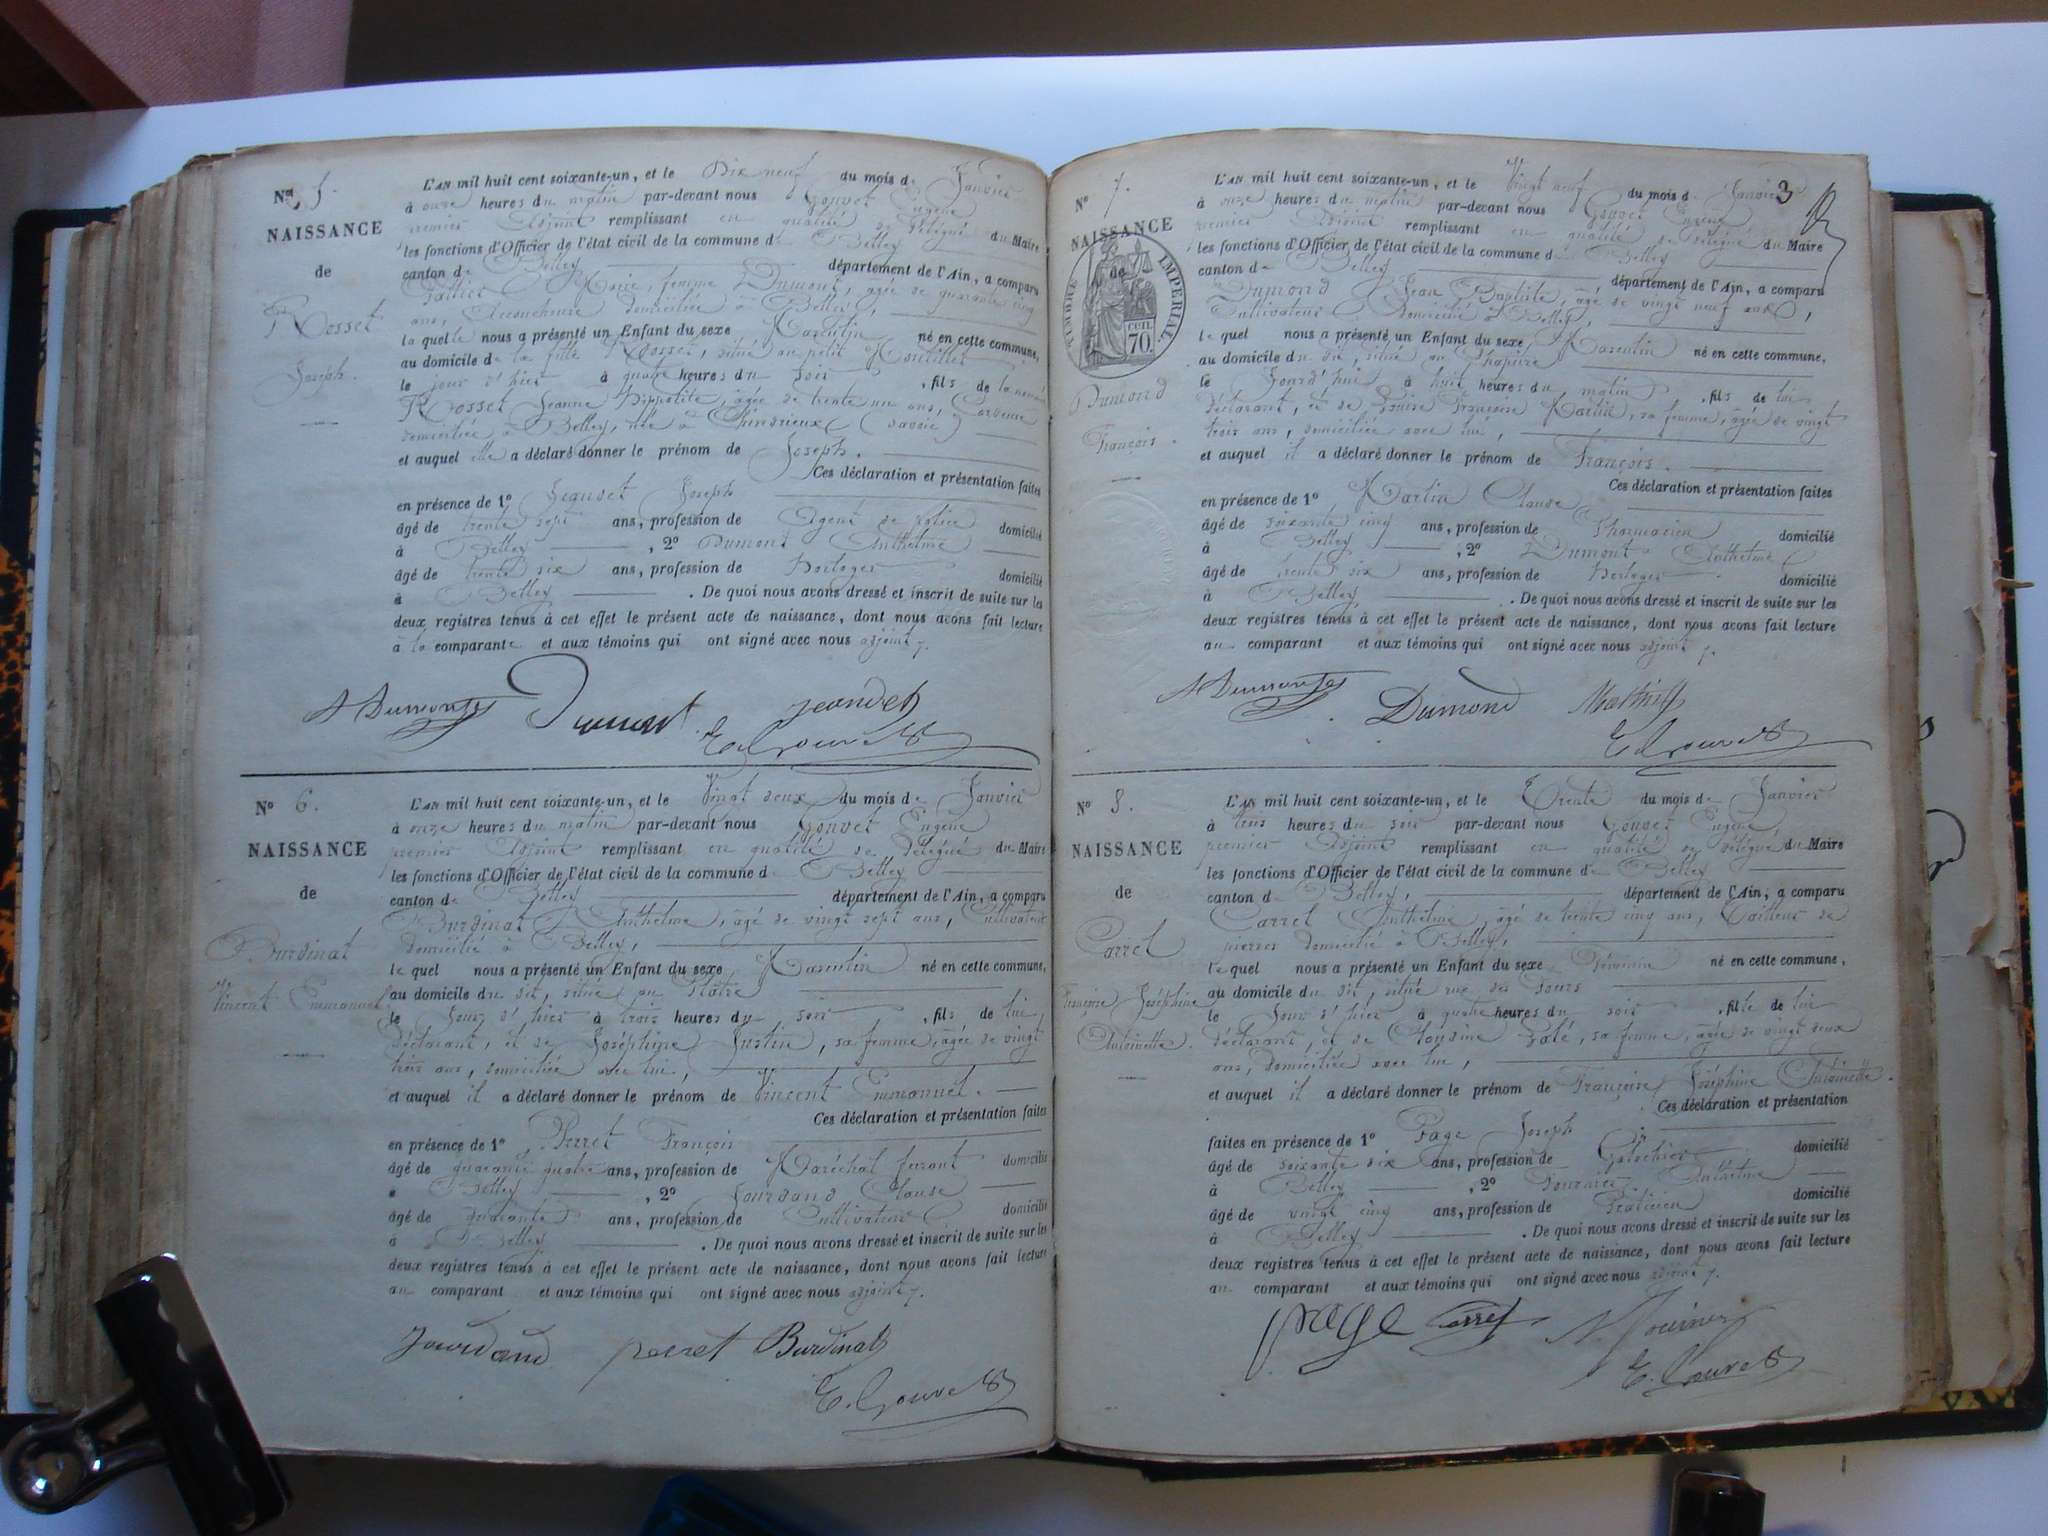 N° 5.
NAISSANCE
de
Rosset
Joseph.
L'AN mil huit cent soixante-un, et le Dix neuf du mois de Janvier
à onze heures du matin par-devant nous Gouvet Eugène
premier Adjoint remplissant en qualité de délégué du Maire
les fonctions d'Officier de l'état civil de la commune de Belley
canton de Belley département de l'Ain, a comparu
Marie, femme Dumont, âgée de quarante cinq
ans, Accoucheuse domiciliée à Belley,
la quelle nous a présenté un Enfant du sexe Masculin né en cette commune,
au domicile de la fille Rosset, situé au petit
le jour d'hier à quatre heures du soir, fils de la nommée
Rosset Jeanne Hippolite, âgée de trente un ans,
domiciliée à Belley, née à Chindrieux (Savoie)
et auquel elle a déclaré donner le prénom de Joseph.
Ces déclaration et présentation faites
en présence de 1° Jeandet Joseph
âgé de trente sept ans, profession de Agent de police domicilié
à Belley, 2° Dumont Anthelme
âgé de trente six ans, profession de Horloger domicilié
à Belley. De quoi nous avons dressé et inscrit de suite sur les
deux registres tenus à cet effet le présent acte de naissance, dont nous avons fait lecture
à la comparante et aux témoins qui ont signé avec nous adjoint
A Dumont Dumont Jeandet
E. Gouvet
N° 6.
NAISSANCE
de
Burdinat
Vincent Emmanuel
L'AN mil huit cent soixante-un, et le Vingt deux du mois de Janvier
à onze heures du matin par-devant nous Gouvet Eugène
premier Adjoint remplissant en qualité de délégué du Maire
les fonctions d'Officier de l'état civil de la commune de Belley
canton de Belley département de l'Ain, a comparu
Burdinat Anthelme, âgé de vingt sept ans, Cultivateur
domicilié à Belley,
le quel nous a présenté un Enfant du sexe Masculin né en cette commune,
au domicile du dit, situé au
le Jour d'hier à trois heures du soir, fils de lui,
déclarant, et de Joséphine Justin, sa femme, âgée de vingt
trois ans, domiciliée avec lui,
et auquel il a déclaré donner le prénom de Vincent Emmanuel.
Ces déclaration et présentation faites
en présence de 1° Perret François
âgé de quarante quatre ans, profession de Maréchal ferrant domicilié
à Belley, 2° Jourdand Clause
âgé de quarante ans, profession de Cultivateur domicilié
à Belley. De quoi nous avons dressé et inscrit de suite sur les
deux registres tenus à cet effet le présent acte de naissance, dont nous avons fait lecture
au comparant et aux témoins qui ont signé avec nous adjoint
Jourdand perret Burdinat
E. Gouvet
3
N° 7.
NAISSANCE
de
TIMBRE IMPERIAL
CEN. 70.
Dumond
François.
L'AN mil huit cent soixante-un, et le Vingt neuf du mois de Janvier
à onze heures du matin par-devant nous Gouvet Eugène
premier Adjoint remplissant en qualité de délégué du Maire
les fonctions d'Officier de l'état civil de la commune de Belley
canton de Belley, département de l'Ain, a comparu
Dumond Jean Baptiste, âgé de vingt neuf ans,
Cultivateur domicilié à Belley,
le quel nous a présenté un Enfant du sexe Masculin né en cette commune,
au domicile du dit, situé au
le Jourd'hui à huit heures du matin, fils de lui
déclarant, et de Louise Françoise Martin, sa femme, âgée de vingt
trois ans, domiciliée avec lui,
et auquel il a déclaré donner le prénom de François.
Ces déclaration et présentation faites
en présence de 1° Martin Clause
âgé de soixante cinq ans, profession de Pharmacien domicilié
à Belley, 2° Dumont Anthelme
âgé de trente six ans, profession de Horloger domicilié
à Belley. De quoi nous avons dressé et inscrit de suite sur les
deux registres tenus à cet effet le présent acte de naissance, dont nous avons fait lecture
au comparant et aux témoins qui ont signé avec nous adjoint
A Dumont Dumond Martin
E. Gouvet
N° 8.
NAISSANCE
de
Carrel
Françoise Joséphine
Antoinette.
L'AN mil huit cent soixante-un, et le Trente du mois de Janvier
à trois heures du soir par-devant nous Gouvet Eugène
premier Adjoint remplissant en qualité de délégué du Maire
les fonctions d'Officier de l'état civil de la commune de Belley
canton de Belley, département de l'Ain, a comparu
Carrel Anthelme, âgé de trente cinq ans, Tailleur de
pierres domicilié à Belley,
le quel nous a présenté un Enfant du sexe Féminin né en cette commune,
au domicile du dit, situé rue des
le Jour d'hier à quatre heures du soir, fille de lui
déclarant, et de Claudine, sa femme, âgée de vingt deux
ans, domiciliée avec lui,
et auquel il a déclaré donner le prénom de Françoise Joséphine Antoinette.
Ces déclaration et présentation
faites en présence de 1° Page Joseph
âgé de soixante six ans, profession de Galochier domicilié
à Belley, 2° Fournier Anthelme
âgé de vingt cinq ans, profession de Praticien domicilié
à Belley. De quoi nous avons dressé et inscrit de suite sur les
deux registres tenus à cet effet le présent acte de naissance, dont nous avons fait lecture
au comparant et aux témoins qui ont signé avec nous adjoint
page Carrel A. Fournier
E. Gouvet